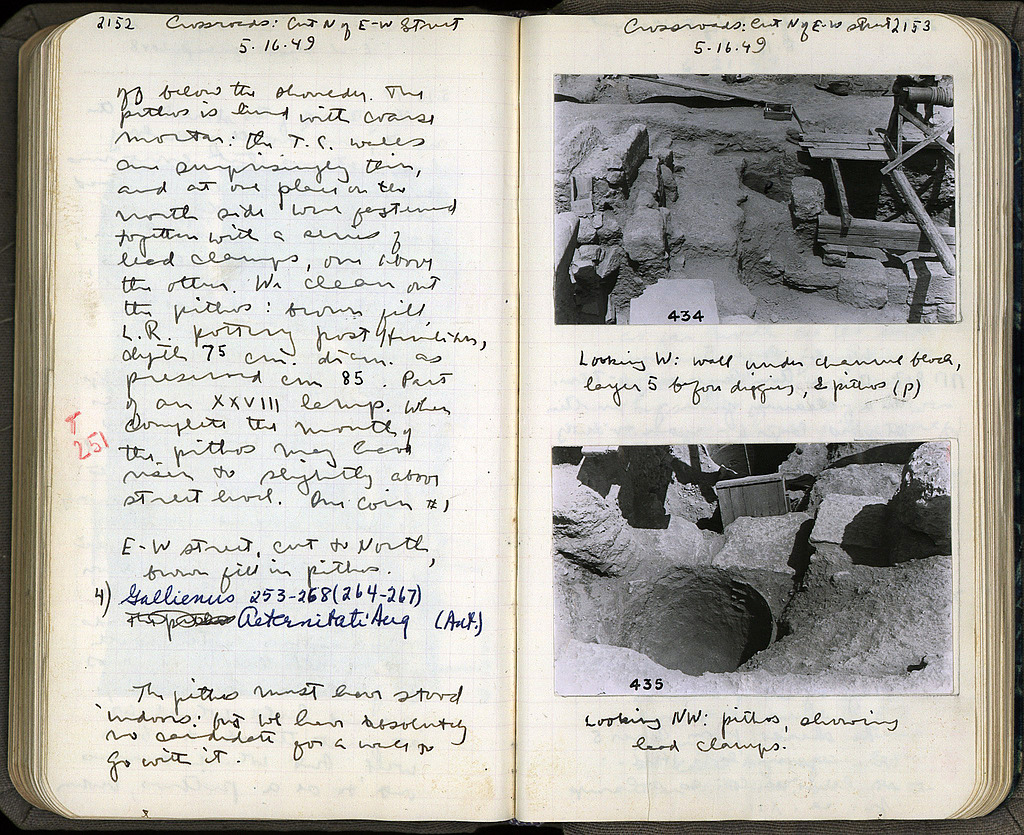 2152 Crossroads: Cut N of E-W Street
5.16.49
off below the shoulder. The
pithos is lined with coarse
mortar: the T.C. walls
are surprisingly thin,
and at one place on the
north side were fastened
together with a series of
lead clamps, one above
the other. We clean out
the pithos: brown fill
L.R. pottery post Herulian,
depth 75 cm. diam. as
preserved cm 85. Part
of an XXVIII lamp. When
complete the mouth of
the pithos may have
risen to slightly above
street level. One coin #1
T
251
E-W street, cut to North,
brown fill in pithos.
4) Gallienus 253-268 (264-267)
Aeternitati Aug (Ant.)
The pithos must have stood
indoors: but we have absolutely
no candidate for a wall to
go with it.
Crossroads: Cut N of E-W street 2153
5.16.49
434
Looking W: wall under channel block,
layer 5 before digging, & pithos (p)
435
Looking NW: pithos, showing
lead clamps.